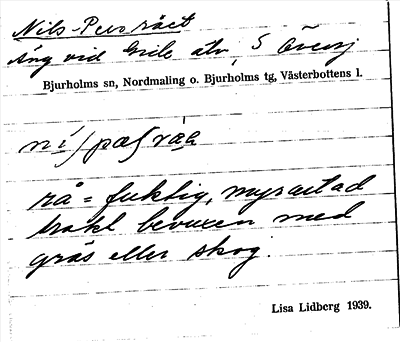 Nils-Pers rået
Äng vid Gile älv, S
Bjurholms sn, Nordmaling o. Bjurholms tg, Västerbottens l.
rå = fuktig, myrartad
trakt bevuxen med
gräs eller skog.
Lisa Lidberg 1939.